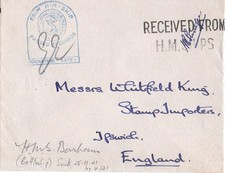 FROM H.M. SHIP
RECEIVED FROM
H.M. SHIPS
Messrs Whitfield King,
Stamp Importers,
Ipswich.
England.
H.M.S. Barham
(Battleship) Sunk 25-11-41
by U 331